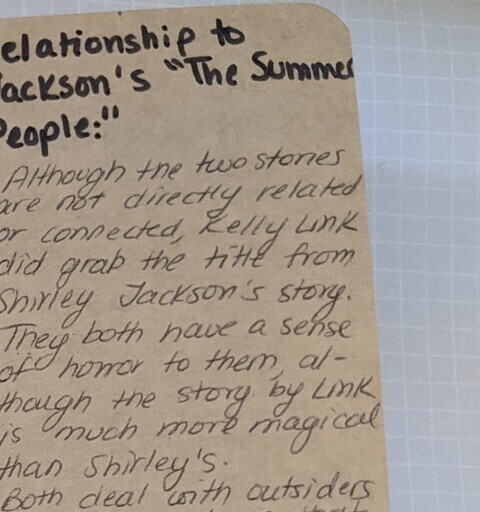 elationship to
ackson's "The Summer
People:"
Although the two stories
are not directly related
or connected, Kelly Link
did grab the title from
Shirley Jackson's story.
They both have a sense
of horror to them, al-
though the story by Link
is much more magical
than Shirley's.
Both deal with outsiders